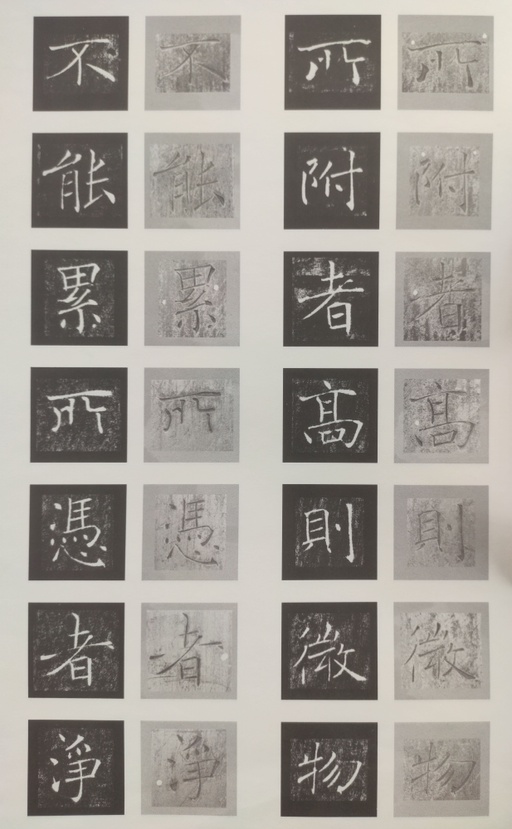 所附者高則微物
所附者高則微物
不能累所憑者淨
不能累所憑者淨